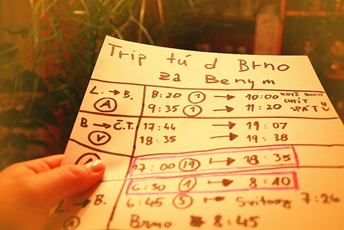 Trip tú d Brno
za Benym
L. → B. 8:20 ① → 10:00 KDYŽ
Ⓐ 9:35 ① → 11:20 SPÁT
B → Č.T. 17:44 → 19:07
Ⓥ 18:35 → 19:38
17:00 ⑲ → 18:35
6:30 ① → 8:10
L. → B. 6:45 ⑤ → Svitavy 7:26
Brno → 8:45